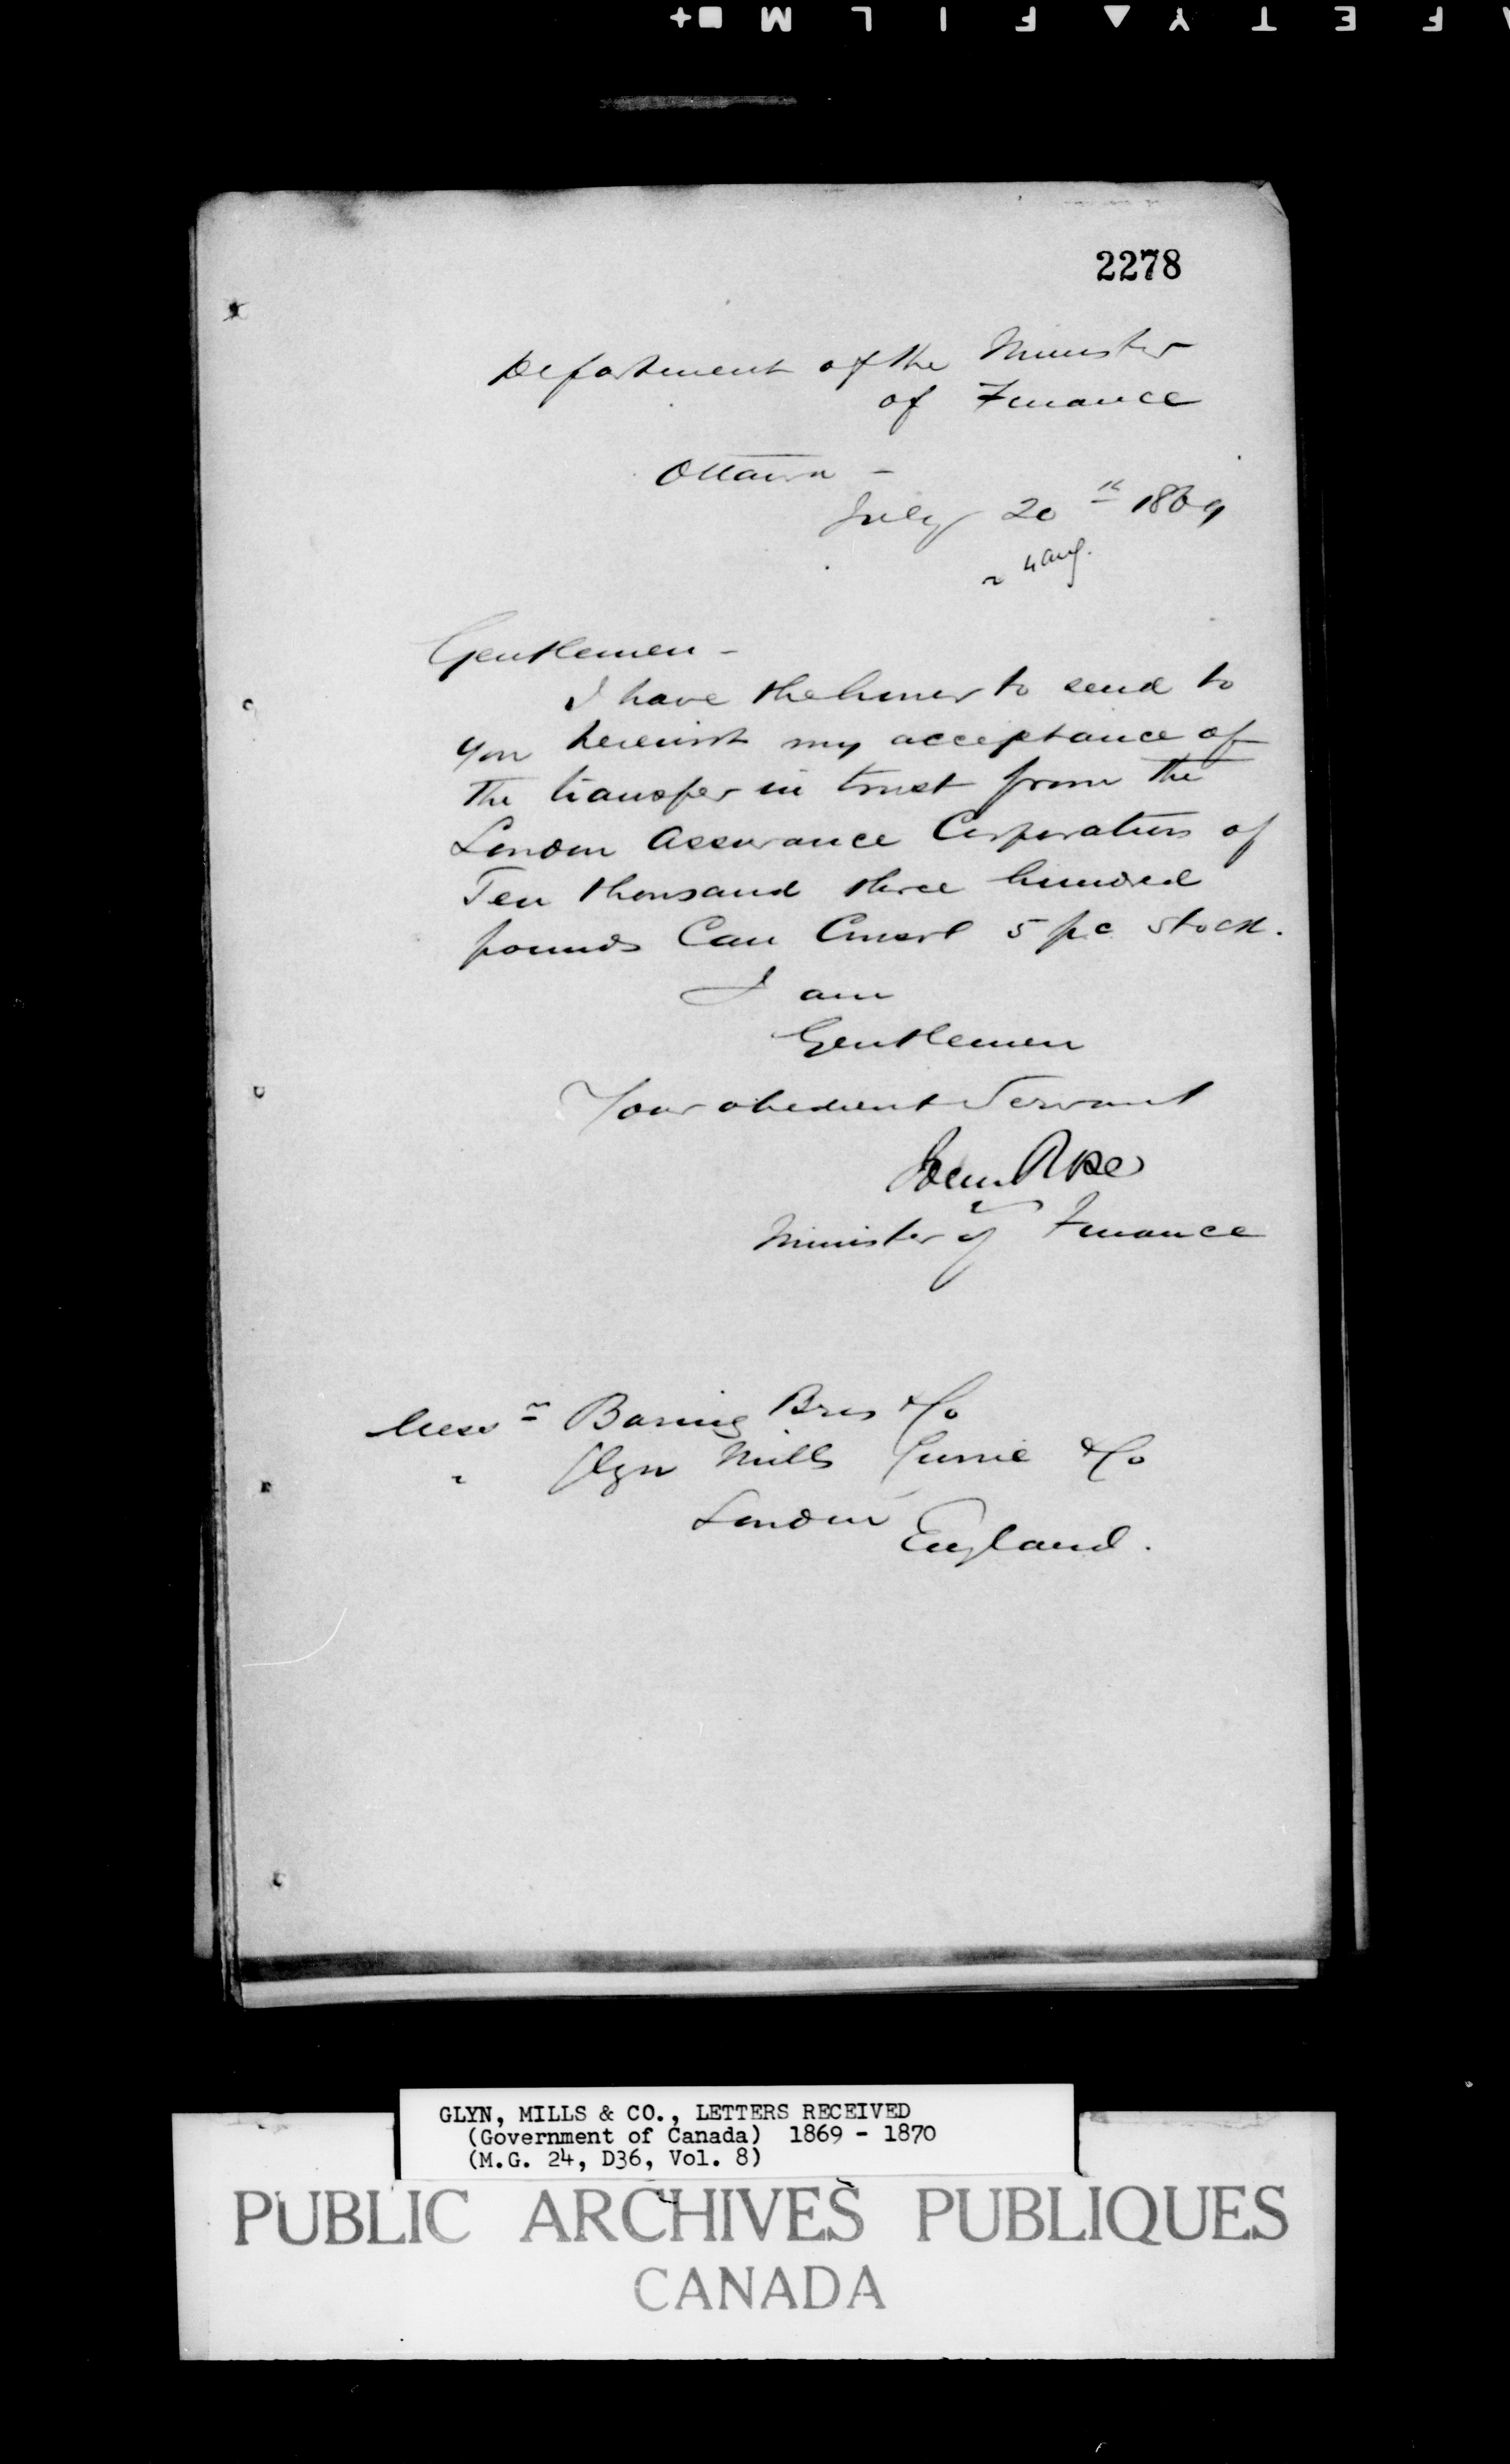 2278
Department of the Minister
of Finance
Ottawa -
July 20th 1869
r 4 Aug.
Gentlemen -
I have the honor to send to
you herewith my acceptance of
the transfer in trust from the
London Assurance Corporation of
Ten thousand three hundred
pounds Can Consol 5 p.c Stock.
I am
Gentlemen
Your obedient Servant
John Rose
Minister of Finance
Messrs Baring Bros & Co
" Glyn Mills Currie & Co
London
England.
GLYN, MILLS & CO., LETTERS RECEIVED
(Government of Canada) 1869 - 1870
(M.G. 24, D36, Vol. 8)
PUBLIC ARCHIVES PUBLIQUES
CANADA